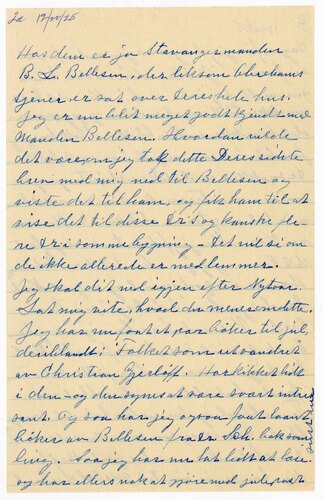 2d 12/11/25
Hos dem er jo Stavangermanden
B. L. Bellesen, der liksom Abrahams
tjener er sat over deres hele hus.
Jeg er nu blit meget godt kjendt med
Manden Bellesen. Hvordan vilde
det være om jeg tok dette Deres sidste
brev med mig ned til Bellesen og
viste det til ham, og fik ham til at
vise det til disse Dr's og kanske fle-
re Dr i somme bygning – det vil si om
de ikke allerede er medlemmer.
Jeg skal dit ned igjen efter Nytaar.
Lat mig vite, hvad du mener om dette.
Jeg har nu faat et par bøker til jul,
deriblandt: Folket som utvandret
av Christian Gjerløff. Har kikket lidt
i den – og den synes at være svært intres
sant. Og saa har jeg ogsaa faat laant
bøker av Bellesen fra Dr. Sch. boksam
ling. Saa jeg har nu lat lidt at læse.
og har ellers nok at gjøre med julepost